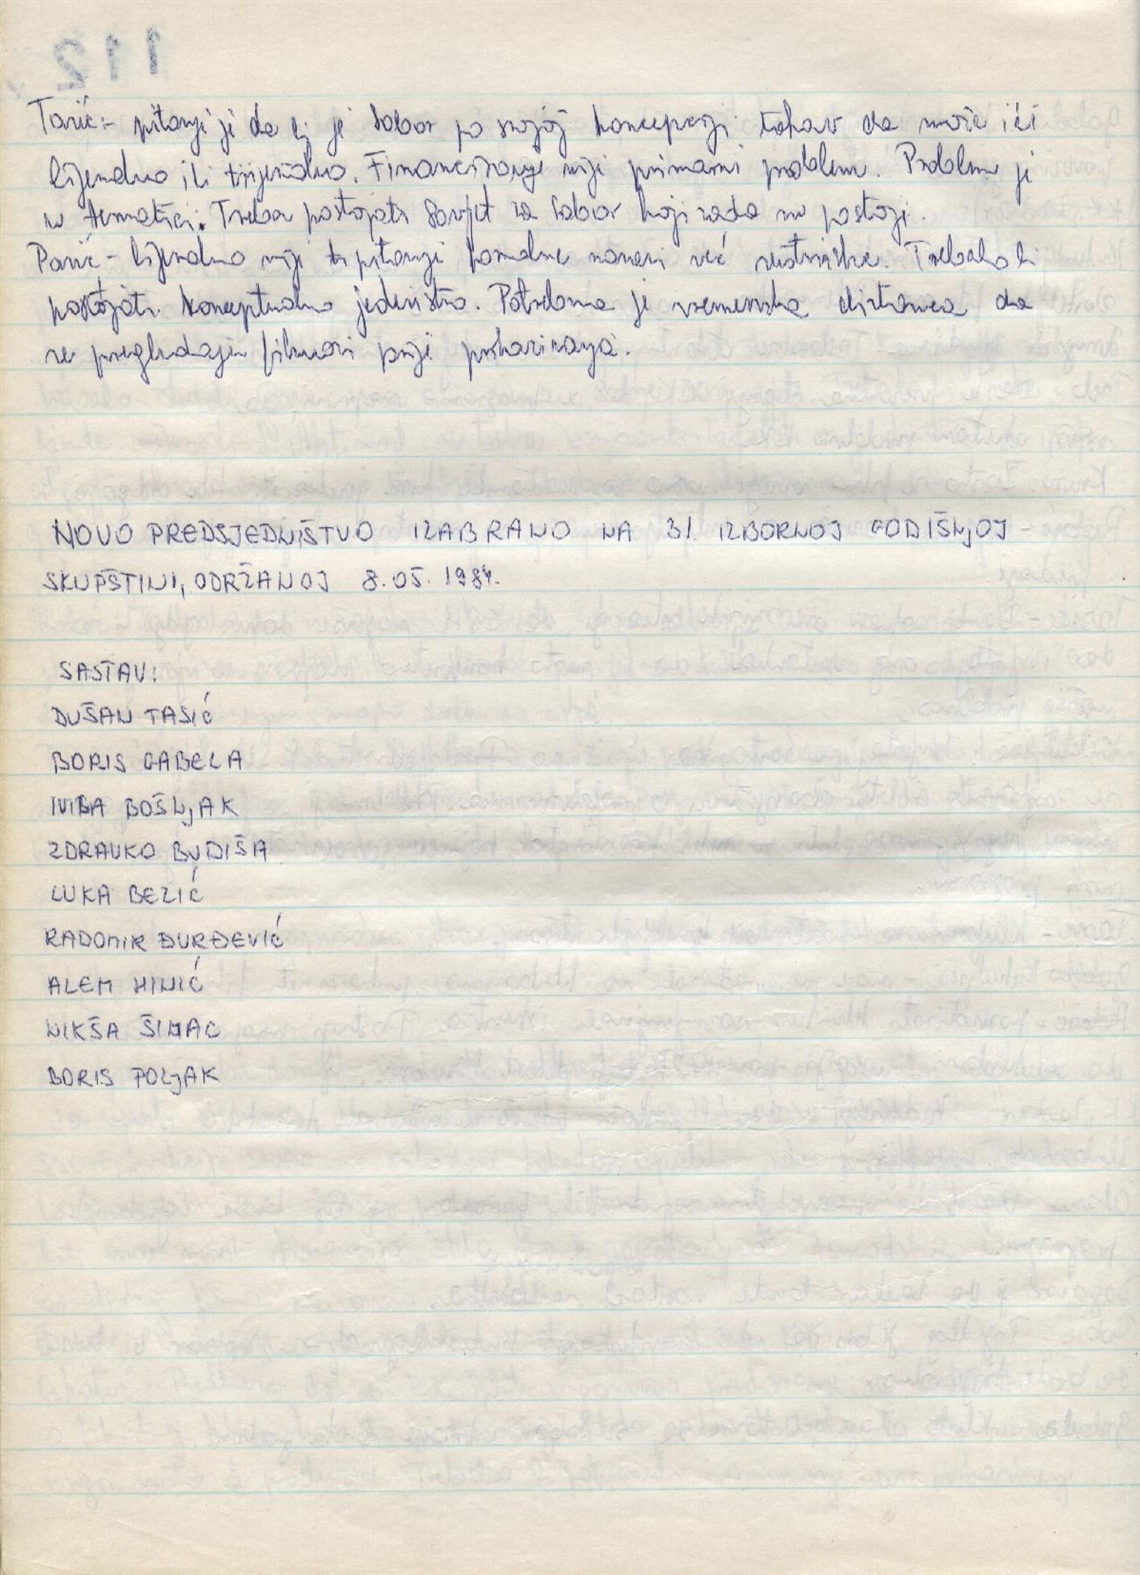 Tasić:- pitanje je da li je Sabor po svojoj koncepciji takav da može ići
bijenalno ili trijenalno. Financiranje nije primarni problem. Problem je
u tematici. Treba postojati Savjet za Sabor koji sada ne postoji.
Pavić - bijenalno nije pitanje formalne naravi već suštinske. Trebalo bi
postojati konceptualno jedinstvo. Potrebna je vremenska distanca da
se pregledaju filmovi prije prikazivanja.
NOVO PREDSJEDNIŠTVO IZABRANO NA 31. IZBORNOJ GODIŠNJOJ -
SKUPŠTINI, ODRŽANOJ 8.05.1984.
SASTAV:
DUŠAN TASIĆ
BORIS GABELA
IVICA BOŠNJAK
ZDRAVKO BUDIŠA
LUKA BEZIĆ
RADOMIR ĐURĐEVIĆ
ALEM HINIĆ
NIKŠA ŠIMAC
BORIS POLJAK